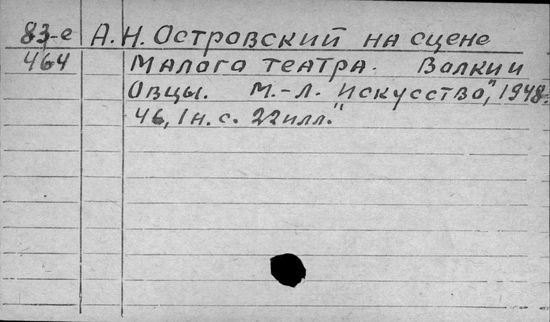 83-е А.Н. Островский на сцене
464 Малого театра. Волки и
Овцы. М.-Л. "Искусство", 1948.
46, 1н. с. 22 илл."